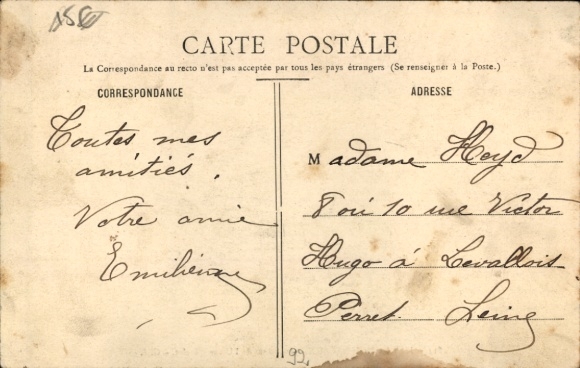 CARTE POSTALE
La Correspondance au recto n'est pas acceptée par tous les pays étrangers (Se renseigner à la Poste.)
CORRESPONDANCE
Toutes mes
amitiés.
Votre amie
Emilienne
ADRESSE
Madame Heyd
8 ou 10 rue Victor
Hugo à Levallois
Perret. Seine
99.